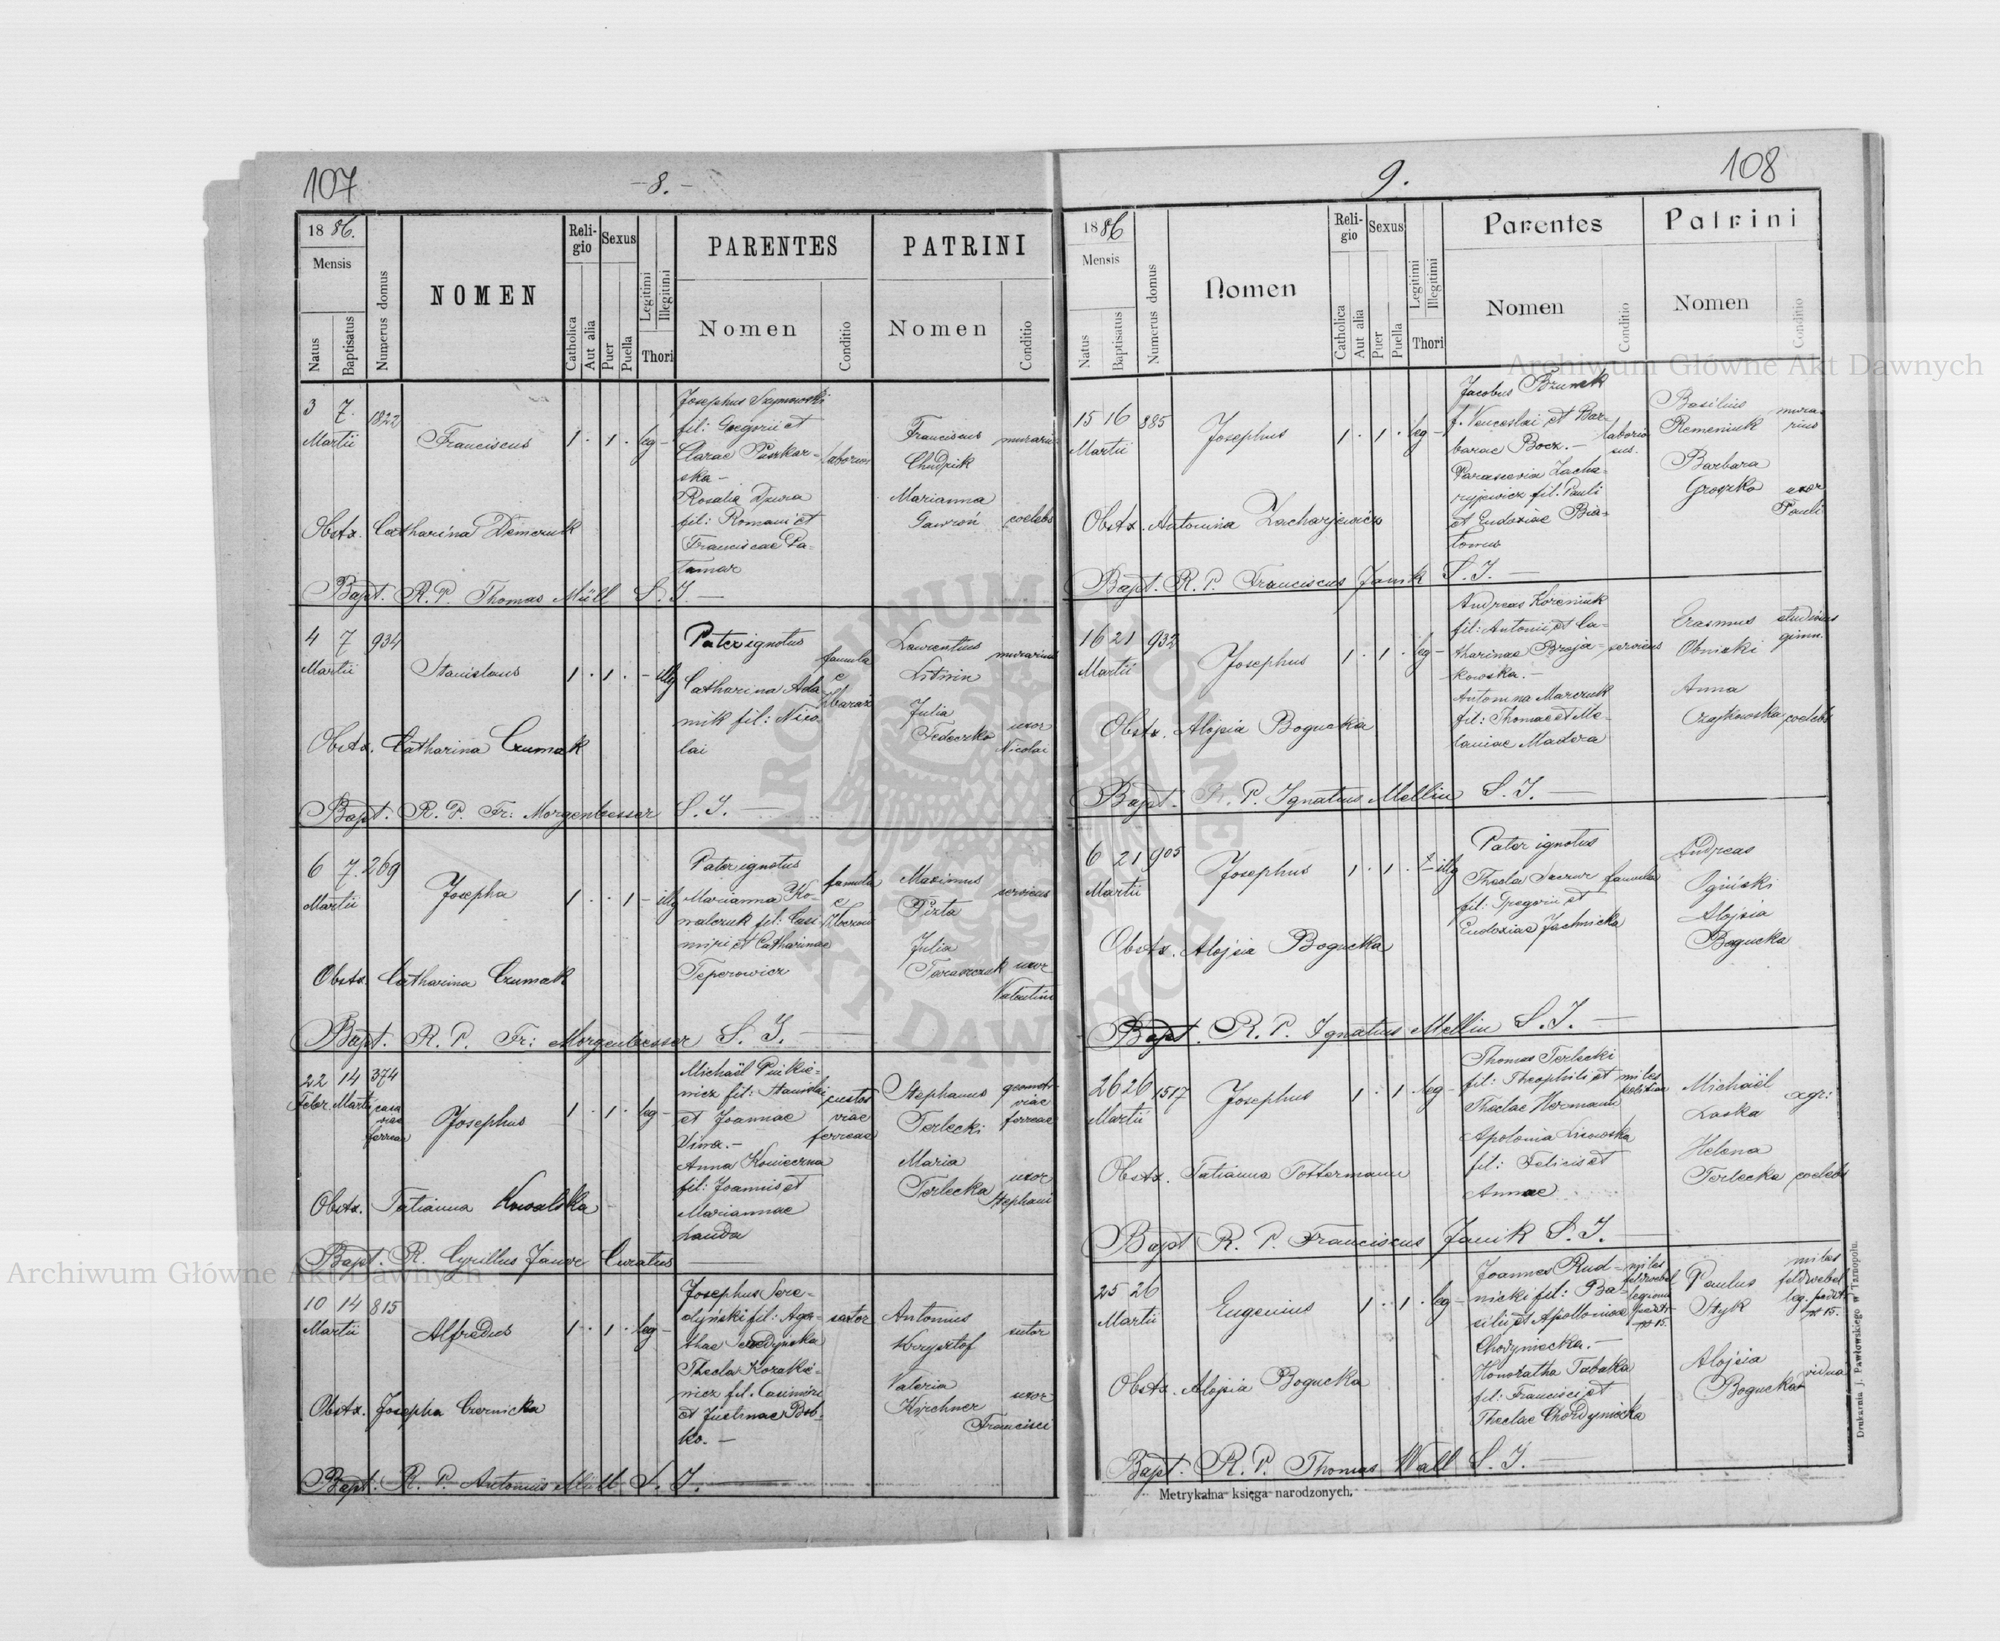 107
- 8. -
1886.
Mensis
Natus
Baptisatus
Numerus domus
NOMEN
Reli-
gio
Catholica
Aut alia
Sexus
Puer
Puella
Legitimi
Illegitimi
Thori
PARENTES
Nomen
Conditio
PATRINI
Nomen
Conditio
3 7. 1822
Martii
Franciscus
1 . 1 . leg -
Josephus
fil: Gregorii et
Clarae Puszkar-
ska -
Rosalia Dziura
fil: Romani et
Franciscae Pa-
laborius
Franciscus
Marianna
Gawroń coelebs
Obstx. Catharina Demczuk
Bapt. R. P. Thomas Müll S. J. —
4 7 934
Martii
Stanislaus
1 . 1 . - illg
Pater ignotus
Catharina Ada-
mik fil: Nico-
lai
famula
e
Zbaraż
Laurentius murarius
Litwin
Julia
Fedeczko uxor
Nicolai
Obstx. Catharina Czumak
Bapt. R. P. Fr: Morgenbesser S. J. —
6 7. 269
Martii
Josepha
1 . . 1 - illg
Pater ignotus
Marianna Ko-
walczuk fil: Casi-
miri et Catharinae
Teperowicz
famula
e
Maximus servicus
Julia
Tarasczuk uxor
Valentini
Obstx. Catharina Czumak
Bapt. R. P. Fr: Morgenbesser S. J. —
22 14 374
Febr. Martii casa
viae
ferreae
Josephus
1 . 1 . leg -
Michaël
fil: Stanislai
et Joannae
Anna Konieczna
fil: Joannis et
Mariannae
Landa
custos
viae
ferreae
Stephanus
Terlecki
viae
ferreae
Maria
Terlecka uxor
Stephani
Obstx. Tatianna Kowalska
Bapt. R. Cyrillus Curatus —
10 14 815
Martii
Alfredus
1 . 1 . leg -
Josephus Sere-
dyński fil: Aga-
thae Seredyńska
Thecla Kozakie-
wicz fil. Casimiri
et Justinae Bob-
ko. -
sartor
Antonius
Krzysztof sutor
Valeria
Kirchner uxor
Francisci
Obstx. Josepha Czernicka
Bapt. R. P. Antonius Müll S. J. —
9.
108
1886
Mensis
Natus
Baptisatus
Numerus domus
Nomen
Reli-
gio
Catholica
Aut alia
Sexus
Puer
Puella
Legitimi
Illegitimi
Thori
Parentes
Nomen
Conditio
Patrini
Nomen
Conditio
15 16 885
Martii
Josephus
1 . 1 . leg -
Jacobus
f. Venceslai et Bar-
barae Bocz. -
Parascevia Zacha-
ryjewicz fil. Pauli
et Eudoxiae Bia-
laborio
sus.
Basilius
Remeniuk
mura-
rius
Barbara
Groszko uxor
Pauli
Obstx. Antonina Zacharjewicz
Bapt. R. P. Franciscus Janik S. J. —
16 21 932
Martii
Josephus
1 . 1 . leg -
Andreas Koreniuk
fil: Antonii et Ca-
tharinae
kowska. -
Antonina Marczuk
fil: Thomae et Me-
laniae Madera
servicus
Erasmus studiosus
Obnicki gimn.
Anna
Czajkowska coelebs
Obstx. Alojsia Bogucka
Bapt. R. P. Ignatius Mellin S. J. —
6 21 905
Martii
Josephus
1 . 1 . - illg
Pater ignotus
Thecla
fil: Gregorii et
Eudoxiae Jachnicka
famula
Andreas
Ogiński
Alojsia
Bogucka
Obstx. Alojsia Bogucka
Bapt. R. P. Ignatius Mellin S. J. —
26 26 1517
Martii
Josephus
1 . 1 . leg -
Thomas Terlecki
fil: Theophili et
Theclae Hermann
Apolonia Lisowska
fil: Felicis et
Annae
miles
Michaël
Laska agr:
Helena
Terlecka coelebs
Obstx. Tatianna Tottermann
Bapt R. P. Franciscus Janik S. J. —
25 26
Martii
Eugenius
1 . 1 . leg -
Joannes Rud-
nicki fil: Ba-
silii et Apolloniae
Chodyniecka. -
Honoratha Tabaka
fil: Francisci et
Theclae Chodyniecka
miles
feldwebel
legionis
№ 15.
Paulus
Styk
miles
feldwebel
leg.
№ 15.
Alojsia
Bogucka vidua
Obstx. Alojsia Bogucka
Bapt. R. P. Thomas Wall S. J. —
Metrykalna księga narodzonych.
Drukarnia J. Pawłowskiego w Tarnopolu.
Archiwum Główne Akt Dawnych
Archiwum Główne Akt Dawnych
ARCHIWUM GŁÓWNE AKT DAWNYCH